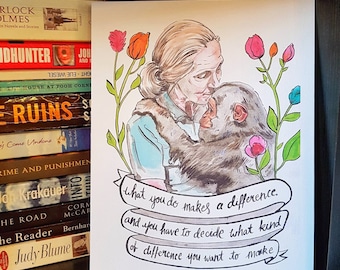 RLOCK
LMES
INDHUNTER
RUINS
Come Undone
RIME AND PUNISHMENT
Krakauer
THE ROAD
The Reader Bernhar
Judy Blume
what you do makes a difference.
and you have to decide what kind
of difference you want to make